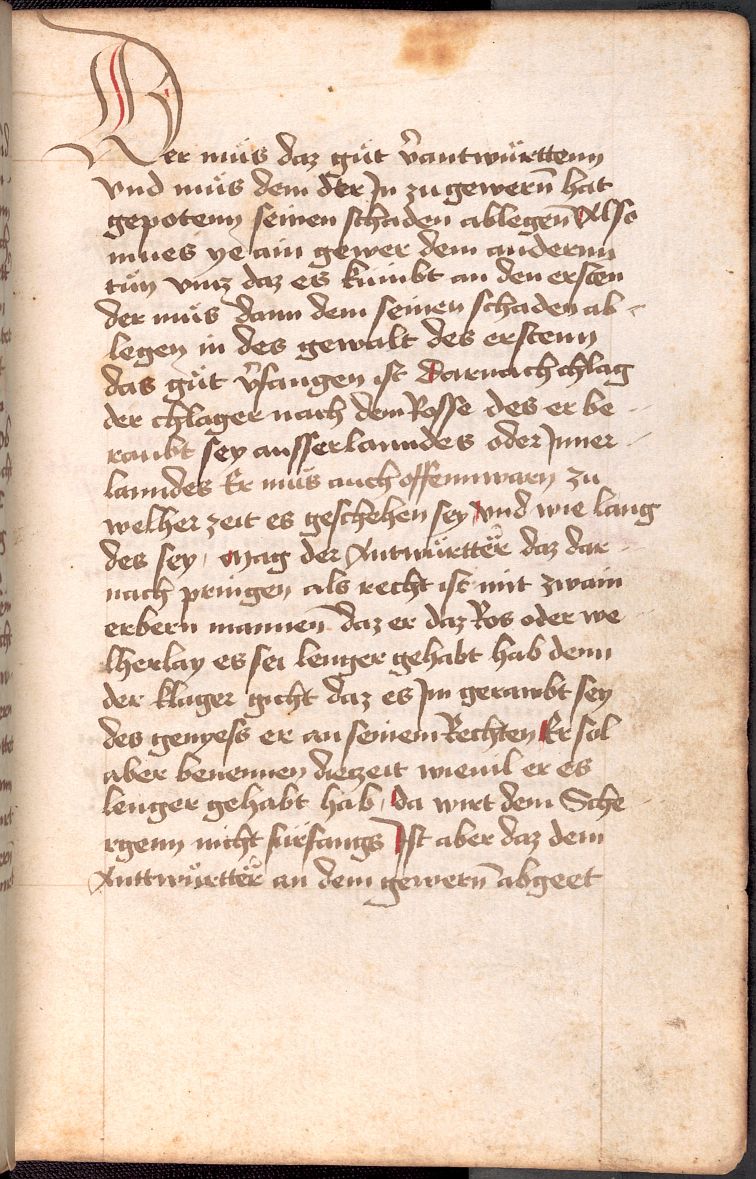 Der müs daz güt v̄antwürttenn
vnd müs dem der Jn zugewern̄ hat
gepotenn seinen schaden ablegen̄ Also
mues ye ain gewer dem andernn
tün vnz daz es kumbt an den ersten
der müs dann dem seinen schaden ab -
legen in des gewalt des erstenn
das güt v̄fangen ist Darnach chlag
der chlager nach dem Rosse des er be -
raubt sey ausserlanndes oder Jnner -
lanndes Er müs auch offennwarn zu
welher zeit es geschehen sey vnd wie lang
des sey / Mag der Antwürtter daz dar -
nach pringen als recht ist mit zwain
erbern mannen̄ daz er daz Ros oder we -
lherlay es sei lenger gehabt hab denn
der klager gicht daz es Jm geraubt sey
des genyess er an seinem Rechten Er sol
aber benennen diezeit wieuil er es
lenger gehabt hab / da wirt dem Sche
rgenn nicht fürfangs Jst aber daz dem
Anttwürtter an dem gewern̄ abgeet